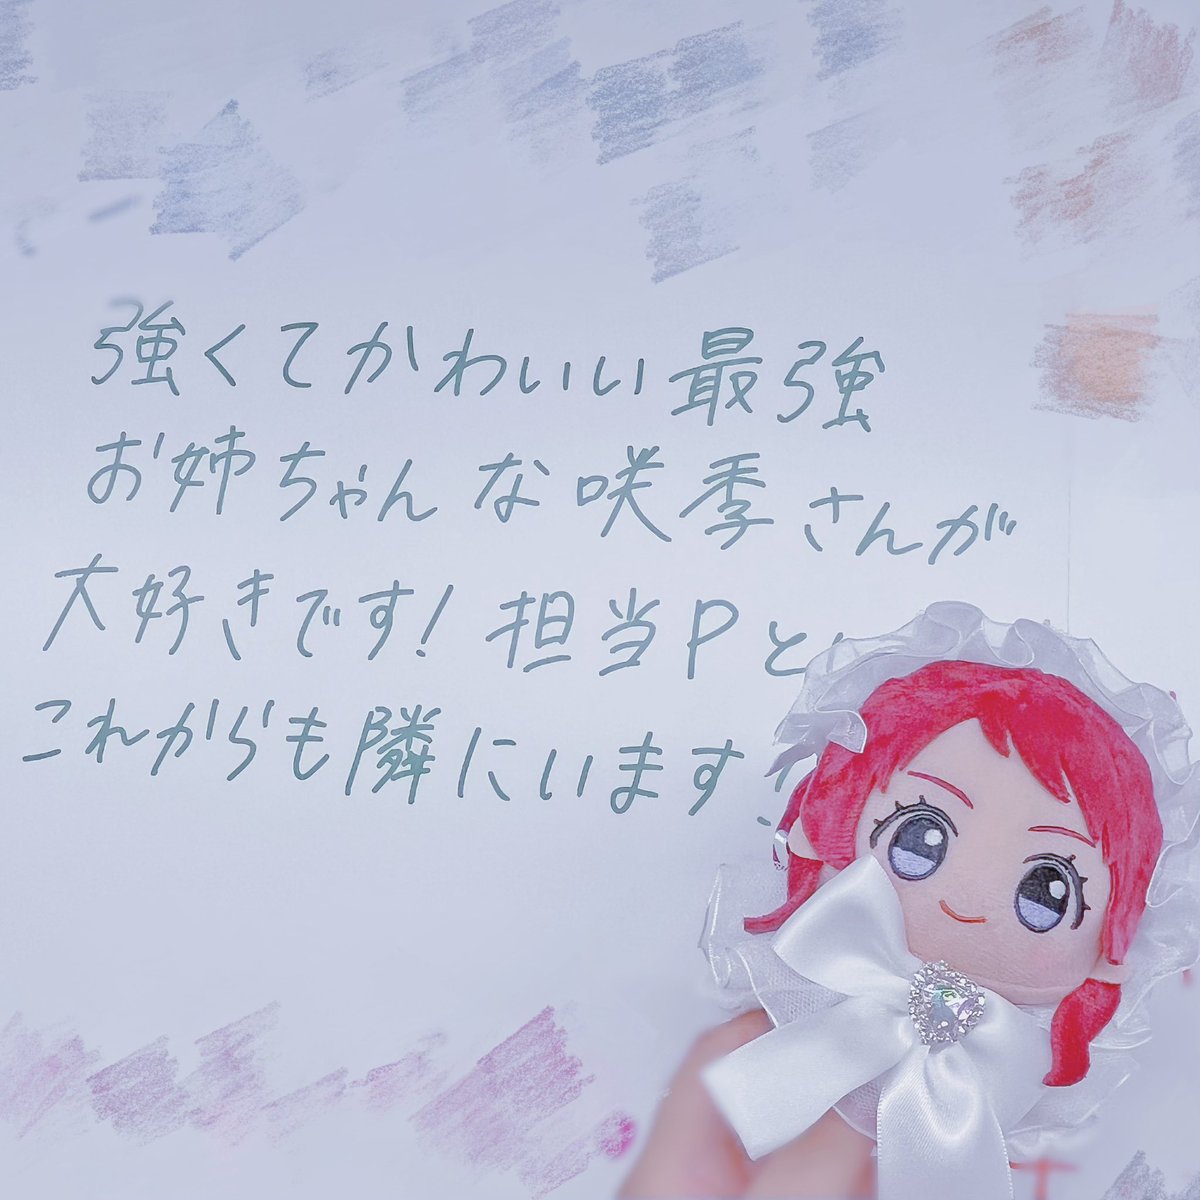 強くてかわいい最強
お姉ちゃんな咲季さんが
大好きです！担当Pと
これからも隣にいます